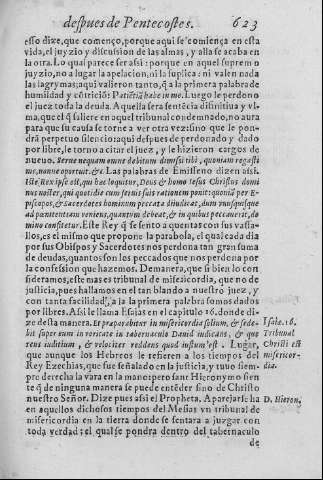 despues de Pentecostes. 623
esso dize, que començo, porque aqui se comiença en esta
vida, el juyzio y discussion de las almas, y alla se acaba en
la otra. Lo qual parece ser assi: porque en aquel supremo
juyzio, no a lugar apelacion, ni la suplica: ni valen nada
las lagrymas: aqui valieron tanto, q̃ a la primera palabra de
humildad y cõfessiõ: Patiẽtiã habe in me. Luego le perdono
el juez toda la deuda. Aquella sera sentẽcia difinitiua y vl-
ma, que el q̃ saliere en aquel tribunal condemnado, no aura
para que su causa se torne a ver otra vez: sino que le pon-
drà perpetuo silencio: aqui despues de perdonado y dado
por libre, le torno a citar el juez, y le hizieron cargos de
nueuo. Serue nequam omne debitum dimisi tibi, quoniam rogasti
me, nonne oportuit. &c. Las palabras de Emisseno dizen assi.
Iste Rex ipse est, quo hac loquitur, Deus & homo Iesus Christus domi
nus noster, qui quotidie cum seruis suis rationem ponit: quoniã per E-
piscopos, & sacerdotes hominum peccata diiudicat, dum vnusquisque
ad pœnitentiam veniens, quantum debeat, & in quibus peccauerit, do
mino confitetur. Este Rey q̃ se sento a quentas con sus vassa-
llos, es el mismo que propone la parabola, el qual cada dia
por sus Obispos y Sacerdotes nos perdona tan gran suma
de deudas, quantos son los peccados que nos perdona por
la confession que hazemos. Demanera, que si bien lo con
sideramos, este mas es tribunal de misericordia, que no de
justicia, pues hallamos en el tan blando a nuestro juez, y
con tanta facilidad, a la primera palabra somos dados
por libres. Assi le llama Esaias en el capitulo 16. donde di-
ze desta manera. Et præparabitur in misericordia solium, & sede-
bit super eum in veritate in tabernaculo Dauid iudicans, & quæ
rens iuditium, & velociter reddens quod iustum est. Lugar,
que aunque los Hebreos le refieren a los tiempos del
Rey Ezechias, que fue señalado en la justicia, y tuuo siem-
pre derecha la vara en la mano: pero sant Hieronymo sien
te q̃ de ninguna manera se puede entẽder sino de Christo
nuestro Señor. Dize pues assi el Propheta. Aparejarse ha
en aquellos dichosos tiempos del Mesias vn tribunal de
misericordia en la tierra donde se sentara a juzgar con
toda verdad: el qual se pondra dentro del tabernaculo
de
Isaie. 16.
Tribunal
Christi est
misericor-
dia.
D. Hieron.